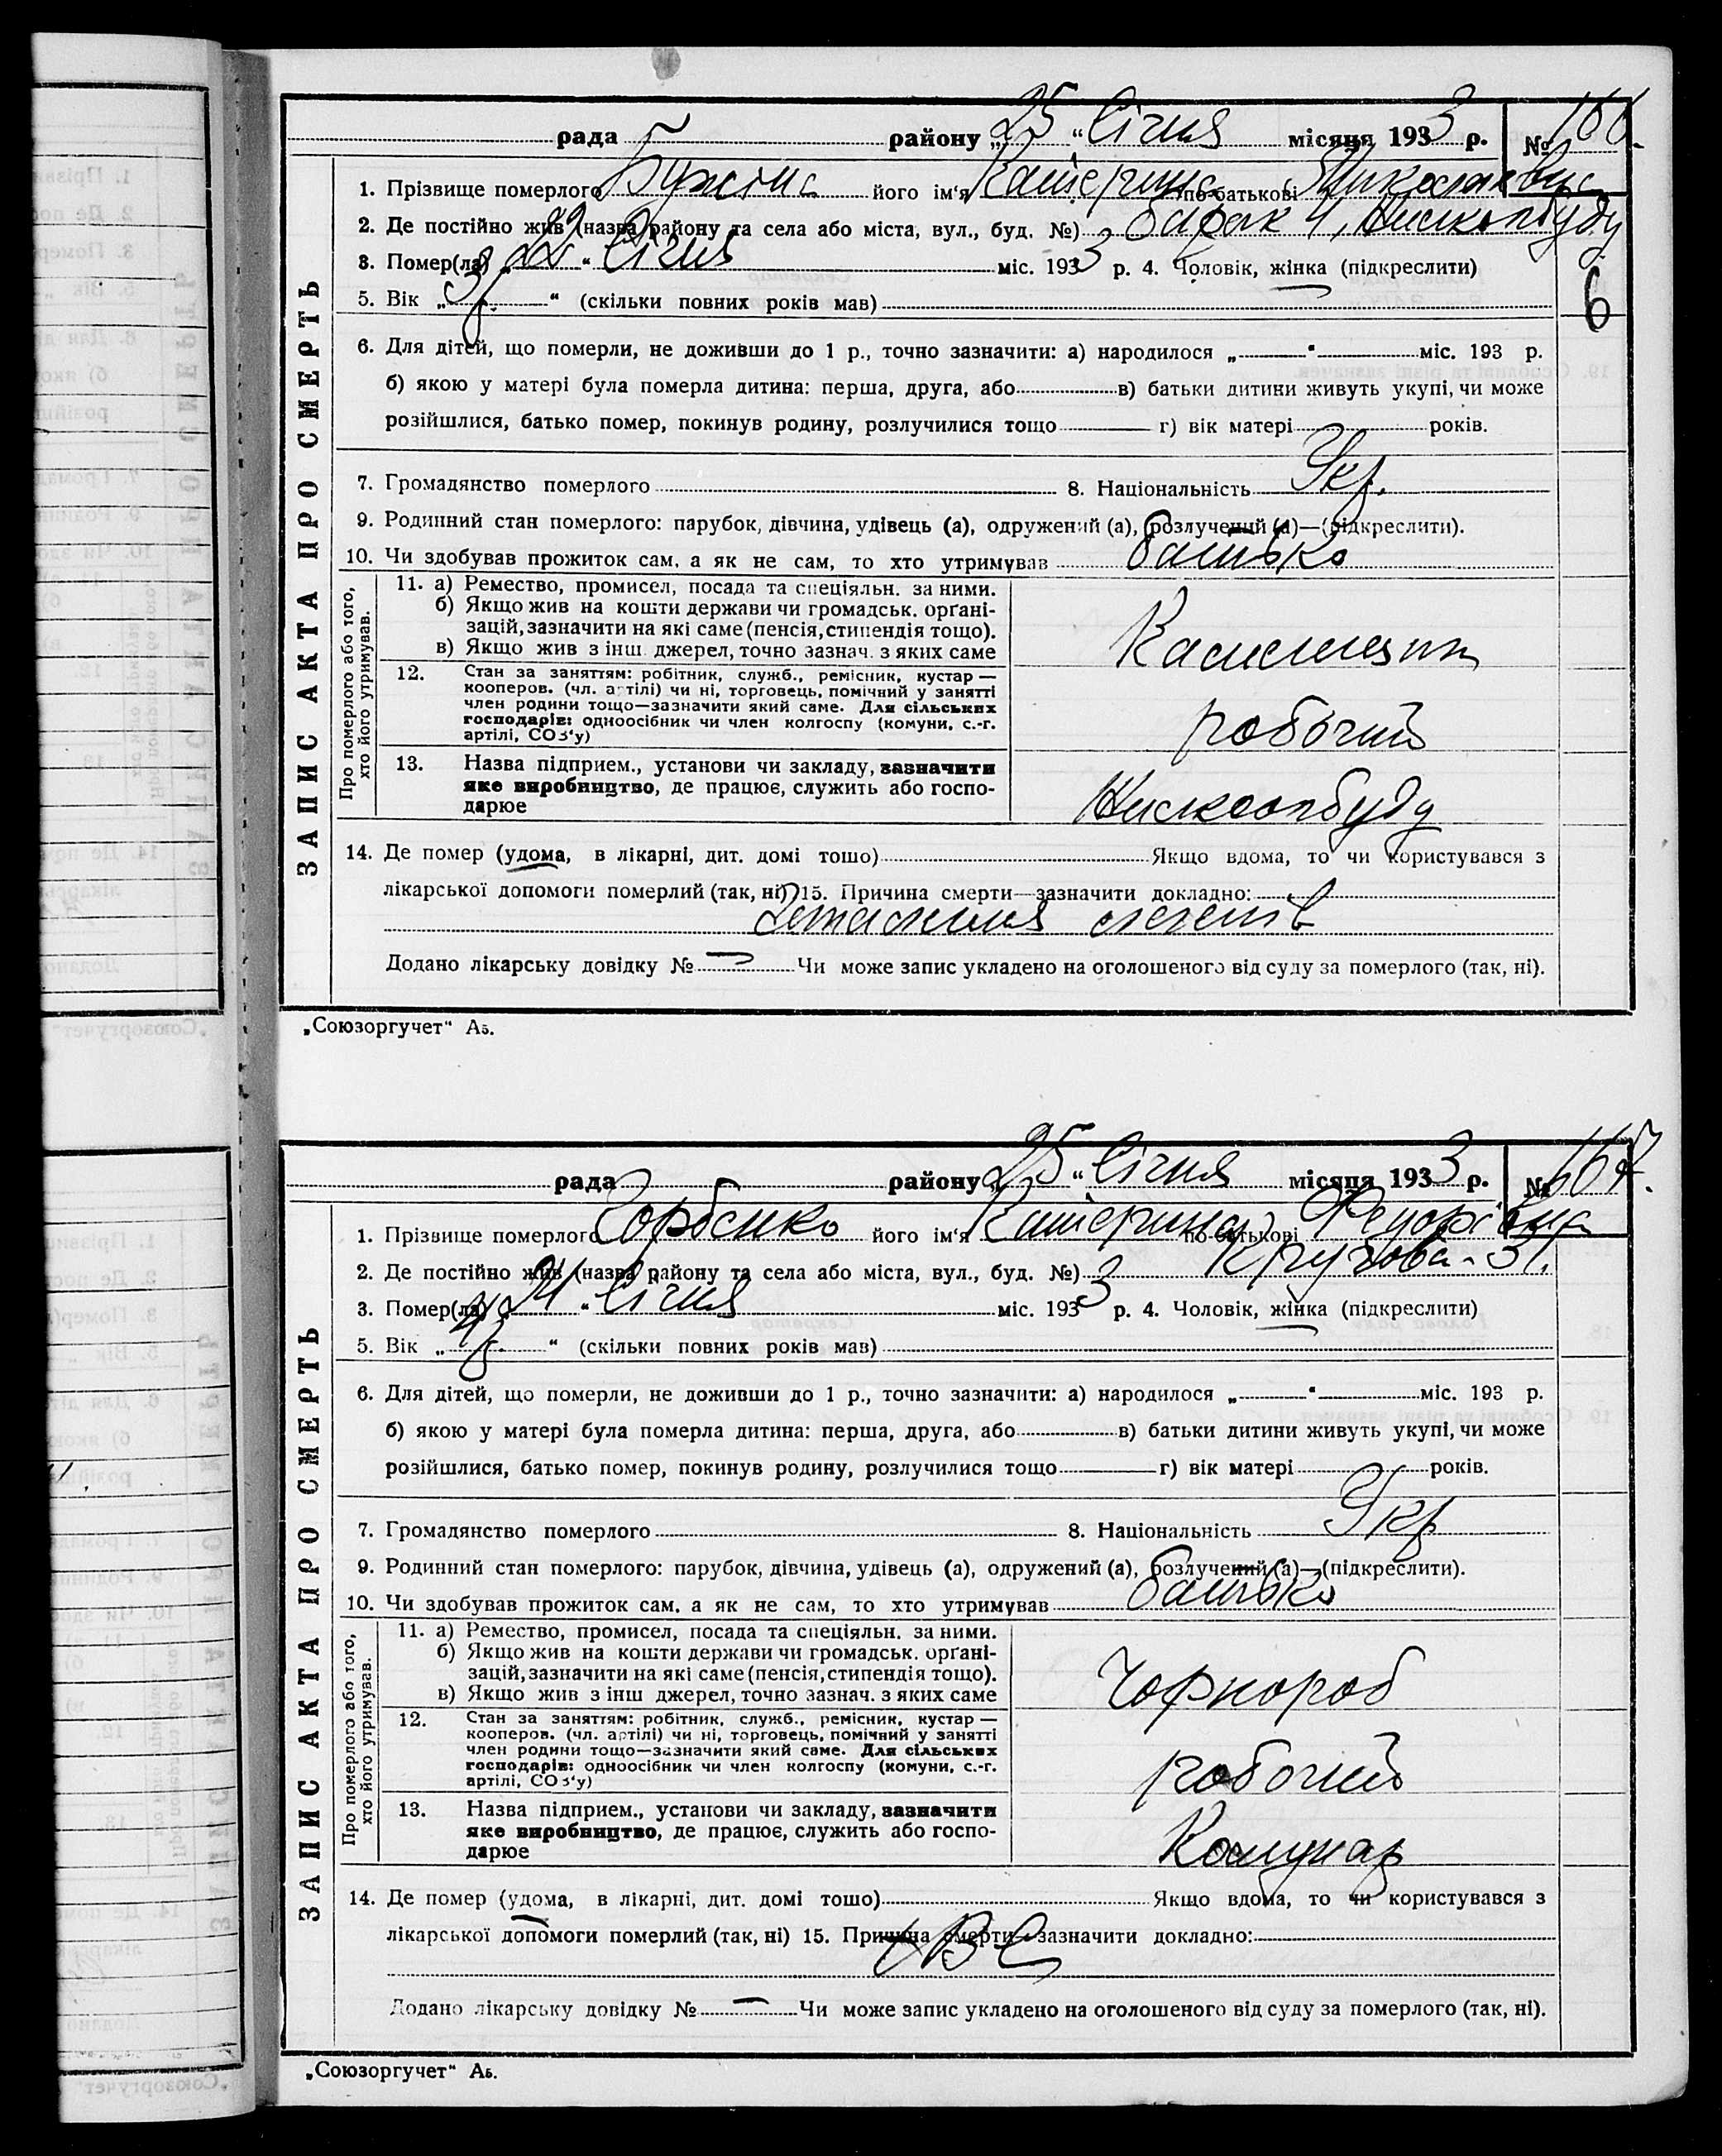 рада района „25“ Січня місяця 1933 р. № 166.
ЗАПИС АКТА ПРО СМЕРТЬ
1. Прізвище померлого його ім'я Катерина по-батькові Миколаївна
2. Де постійно жив (назва району та села або міста, вул., буд. №) барак 4,
3. Помер(ла) „22“ Січня міс. 1933 р. 4. Чоловік, жінка (підкреслити)
6
5. Вік „3 р.“ (скільки повних років мав)
6. Для дітей, що померли, не доживши до 1 р., точно зазначити: а) народилося „ “ міс. 193 р.
б) якою у матері була померла дитина: перша, друга, або в) батьки дитини живуть укупі, чи може
розійшлися, батько помер, покинув родину, розлучилися тощо г) вік матері років.
7. Громадянство померлого 8. Національність Укр.
9. Родинний стан померлого: парубок, дівчина, удівець (а), одружений (а), розлучений (а)—(підкреслити).
10. Чи здобував прожиток сам, а як не сам, то хто утримував батько
Про померлого або того,
хто його утримував.
11. а) Ремество, промисел, посада та спеціяльн. за ними.
б) Якщо жив на кошти держави чи громадськ. орґані-
зацій, зазначити на які саме (пенсія, стипендія тощо).
в) Якщо жив з інш. джерел, точно зазнач. з яких саме
Каменщик
12. Стан за заняттям: робітник, служб., ремісник, кустар —
кооперов. (чл. артілі) чи ні, торговець, помічний у занятті
член родини тощо—зазначити який саме. Для сільських
господарів: одноосібник чи член колгоспу (комуни, с.-г.
артілі, СОЗ'у)
робочий
13. Назва підприєм., установи чи закладу, зазначити
яке виробництво, де працює, служить або госпо-
дарює
14. Де помер (удома, в лікарні, дит. домі тощо) Якщо вдома, то чи користувався з
лікарської допомоги померлий (так, ні) 15. Причина смерти—зазначити докладно:
легенів
Додано лікарську довідку № — Чи може запис укладено на оголошеного від суду за померлого (так, ні).
„Союзоргучет“ А5.
рада району „25“ Січня місяця 1933 р. № 167.
ЗАПИС АКТА ПРО СМЕРТЬ
1. Прізвище померлого Горбенко його ім'я Катерина по-батькові Федорівна
2. Де постійно жив (назва району та села або міста, вул., буд. №) Кругова - 31.
3. Помер(ла) „24“ Січня міс. 1933 р. 4. Чоловік, жінка (підкреслити)
5. Вік „4 р.“ (скільки повних років мав)
6. Для дітей, що померли, не доживши до 1 р., точно зазначити: а) народилося „ “ міс. 193 р.
б) якою у матері була померла дитина: перша, друга, або в) батьки дитини живуть укупі, чи може
розійшлися, батько помер, покинув родину, розлучилися тощо г) вік матері років.
7. Громадянство померлого 8. Національність Укр
9. Родинний стан померлого: парубок, дівчина, удівець (а), одружений (а), розлучений (а)—(підкреслити).
10. Чи здобував прожиток сам, а як не сам, то хто утримував батько
Про померлого або того,
хто його утримував.
11. а) Ремество, промисел, посада та спеціяльн. за ними.
б) Якщо жив на кошти держави чи громадськ. орґані-
зацій, зазначити на які саме (пенсія, стипендія тощо).
в) Якщо жив з інш джерел, точно зазнач. з яких саме
Чорнороб
12. Стан за заняттям: робітник, служб., ремісник, кустар —
кооперов. (чл. артілі) чи ні, торговець, помічний у занятті
член родини тощо—зазначити який саме. Для сільських
господарів: одноосібник чи член колгоспу (комуни, с.-г.
артілі, СОЗ'у)
робочий
13. Назва підприєм., установи чи закладу, зазначити
яке виробництво, де працює, служить або госпо-
дарює
Комунар
14. Де помер (удома, в лікарні, дит. домі тощо) Якщо вдома, то чи користувався з
лікарської допомоги померлий (так, ні) 15. Причина смерти—зазначити докладно:
tBC
Додано лікарську довідку № — Чи може запис укладено на оголошеного від суду за померлого (так, ні).
„Союзоргучет“ А5.